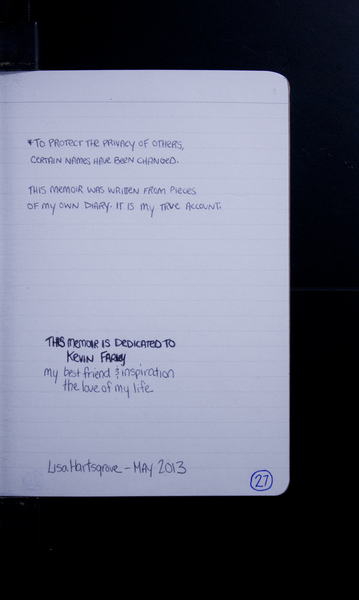 *TO PROTECT THE PRIVACY OF OTHERS,
CERTAIN NAMES HAVE BEEN CHANGED.
THIS MEMOIR WAS WRITTEN FROM PIECES
OF MY OWN DIARY. IT IS MY TRUE ACCOUNT.
THIS MEMOIR IS DEDICATED TO
KEVIN
my best friend & inspiration
the love of my life
Lisa Hartsgrove - MAY 2013
27